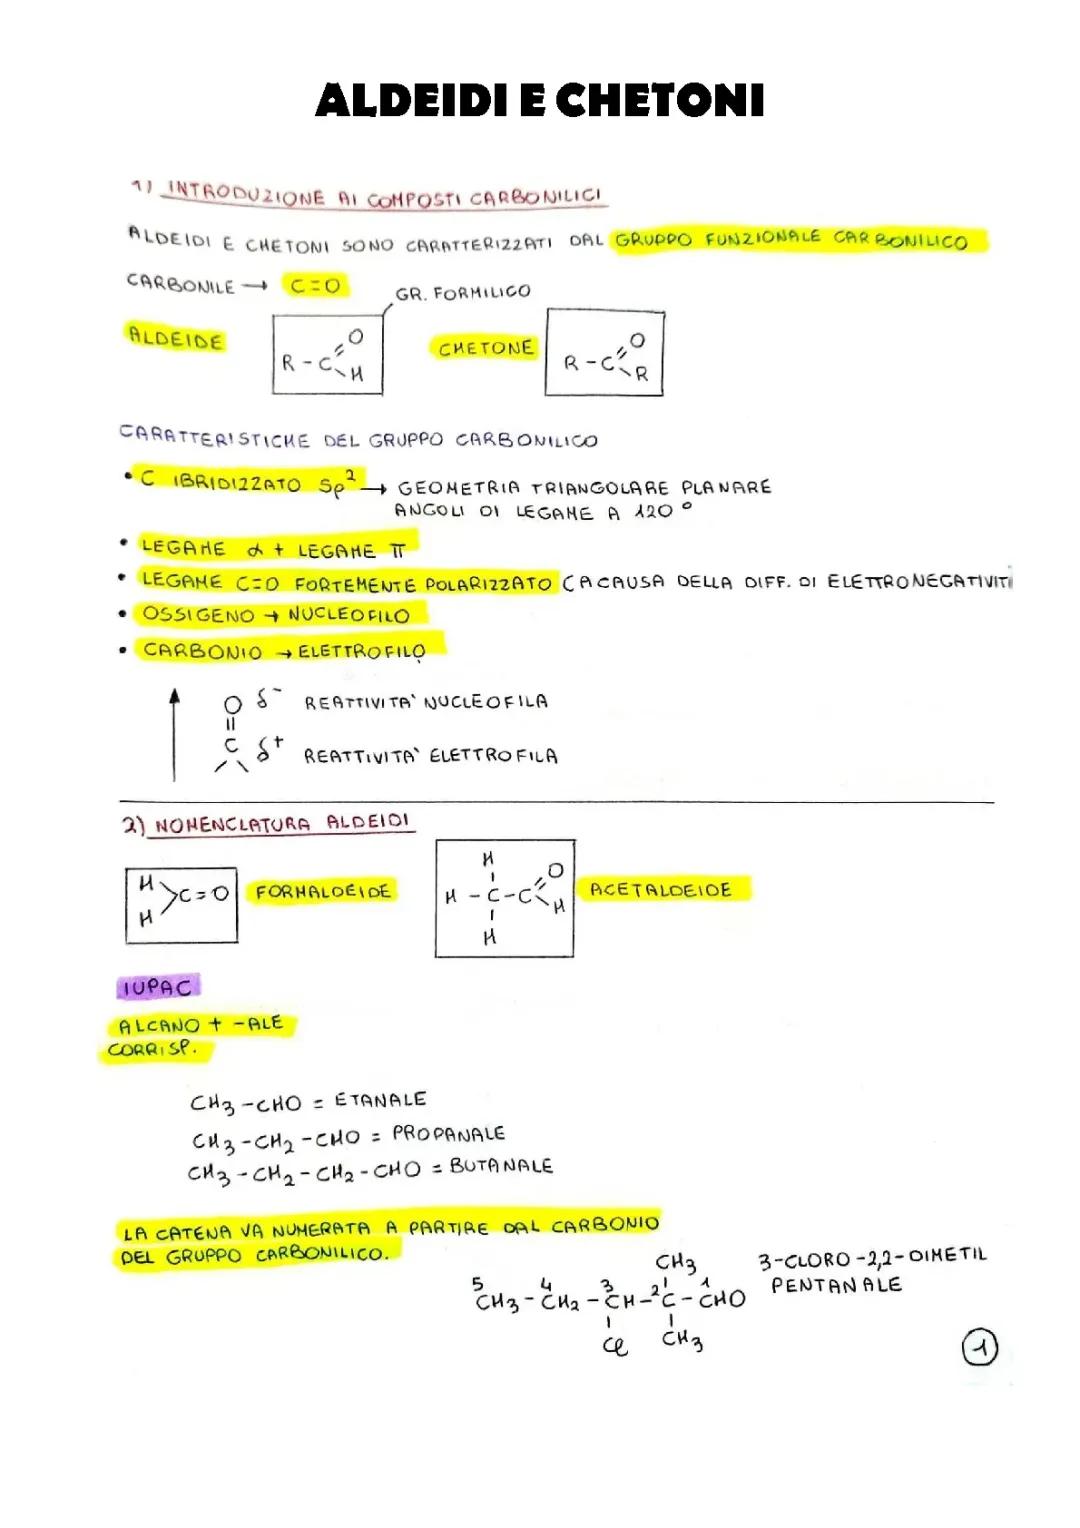 ALDEIDI E CHETONI
1) INTRODUZIONE AI COMPOSTI CARBONILICI
ALDEIDI E CHETONI SONO CARATTERIZZATI DAL GRUPPO FUNZIONALE CARBONILICO
CARBONILE → C=O
GR. FORMILICO
ALDEIDE
R-C
O
H
CHETONE
R-C
O
R
CARATTERISTICHE DEL GRUPPO CARBONILICO
• C IBRIDIZZATO Sp² → GEOMETRIA TRIANGOLARE PLANARE
ANGOLI DI LEGAME A 120°
• LEGAME α + LEGAME π
• LEGAME C=O FORTEMENTE POLARIZZATO (A CAUSA DELLA DIFF. DI ELETTRONEGATIVIT
• OSSIGENO → NUCLEOFILO
• CARBONIO → ELETTROFILO
O δ⁻ REATTIVITA' NUCLEOFILA
C δ⁺ REATTIVITA' ELETTROFILA
2) NOMENCLATURA ALDEIDI
H
H
C=O
FORMALDEIDE
H
H-C-C
O
H
H
ACETALDEIDE
IUPAC
ALCANO + -ALE
CORRISP.
CH₃-CHO = ETANALE
CH₃-CH₂-CHO = PROPANALE
CH₃-CH₂-CH₂-CHO = BUTANALE
LA CATENA VA NUMERATA A PARTIRE DAL CARBONIO
DEL GRUPPO CARBONILICO.
CH₃
5 4 3 2 1
CH₃-CH₂-CH-C-CHO
Cl CH₃
3-CLORO-2,2-DIMETIL
PENTANALE
1